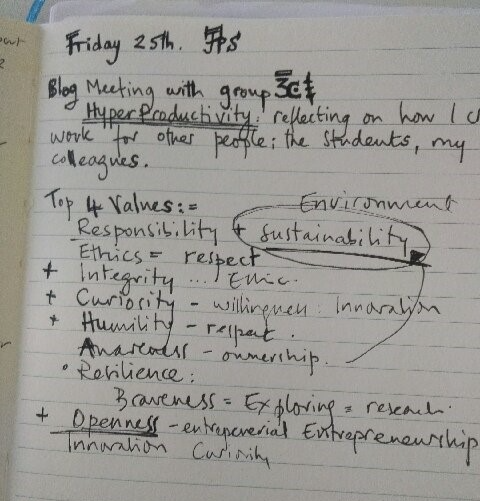 Friday 25th.
Blog Meeting with group
HyperProductivity: reflecting on how I
work for other people; the students, my
colleagues.
Top 4 Values:=
Environment
Responsibility + Sustainability
Ethics = respect
+ Integrity ... Ethic.
+ Curiosity - willingness: Innovation
+ Humility - respect.
Awareness - ownership.
Resilience:
Braveness = Exploring = research.
+ Openness - entreperneurial Entrepreneurship
Innovation Curiosity